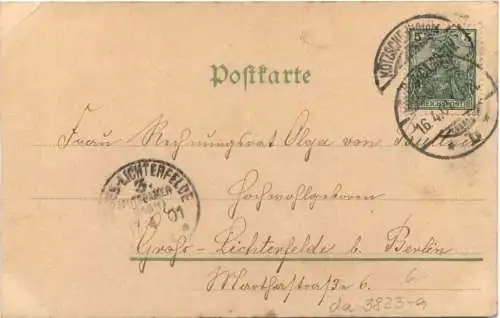 Postkarte
Frau Rechnungsrat Olga von
Hochwohlgeboren
Groß-Lichterfelde b. Berlin
Marthastraße 6.
6
da-3833-a
LICHTERFELDE
3
16.4.